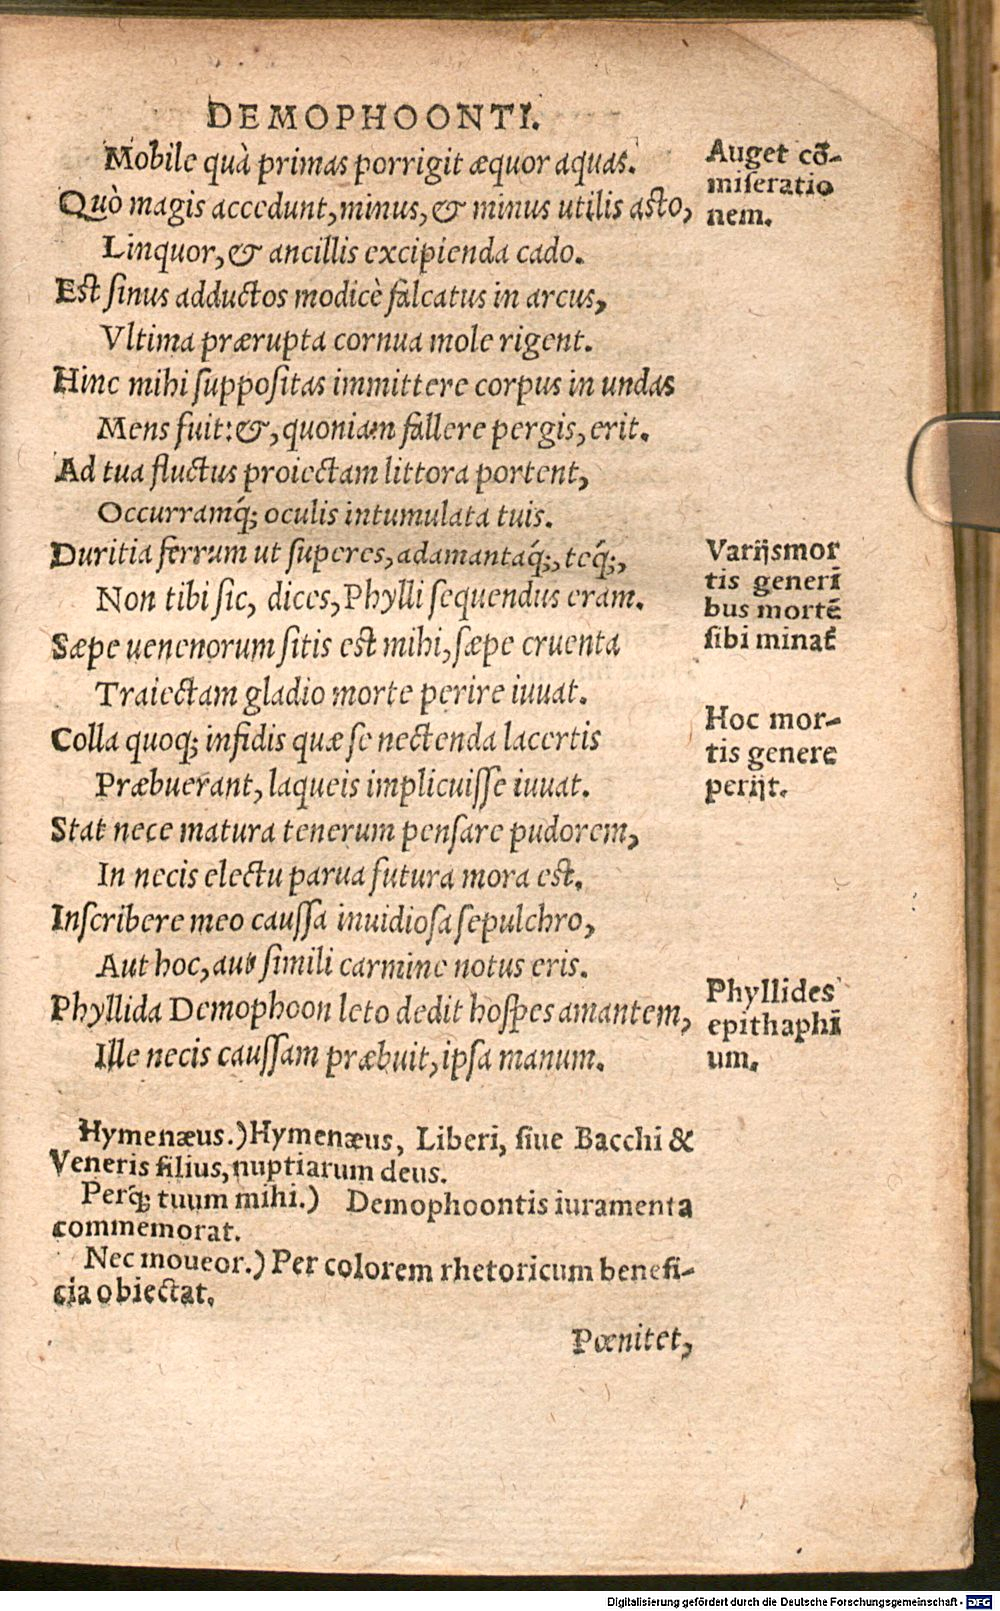 DEMOPHOONTI.
Mobile quà primas porrigit æquor aquas.
Quò magis accedunt, minus, & minus utilis asto,
Linquor, & ancillis excipienda cado.
Est sinus adductos modicè falcatus in arcus,
Vltima prærupta cornua mole rigent.
Hinc mihi suppositas immittere corpus in undas
Mens fuit: &, quoniam fallere pergis, erit.
Ad tua fluctus proiectam littora portent,
Occurramq́; oculis intumulata tuis.
Duritia ferrum ut superes, adamantaq́;, teq́;,
Non tibi sic, dices, Phylli sequendus eram.
Sæpe uenenorum sitis est mihi, sæpe cruenta
Traiectam gladio morte perire iuuat.
Colla quoq; infidis quæ se nectenda lacertis
Præbuerant, laqueis implicuisse iuuat.
Stat nece matura tenerum pensare pudorem,
In necis electu parua futura mora est.
Inscribere meo caussa inuidiosa sepulchro,
Aut hoc, aut simili carmine notus eris.
Phyllida Demophoon leto dedit hospes amantem,
Ille necis caussam præbuit, ipsa manum.
Auget cō-
miseratio
nem.
Varijs mor
tis generi
bus mortē
sibi minat̄
Hoc mor-
tis genere
perijt.
Phyllides
epithaphi
um.
Hymenæus.) Hymenæus, Liberi, siue Bacchi &
Veneris filius, nuptiarum deus.
Perq́; tuum mihi.) Demophoontis iuramenta
commemorat.
Nec moueor.) Per colorem rhetoricum benefi-
cia obiectat.
Pœnitet,
Digitalisierung gefördert durch die Deutsche Forschungsgemeinschaft - DFG